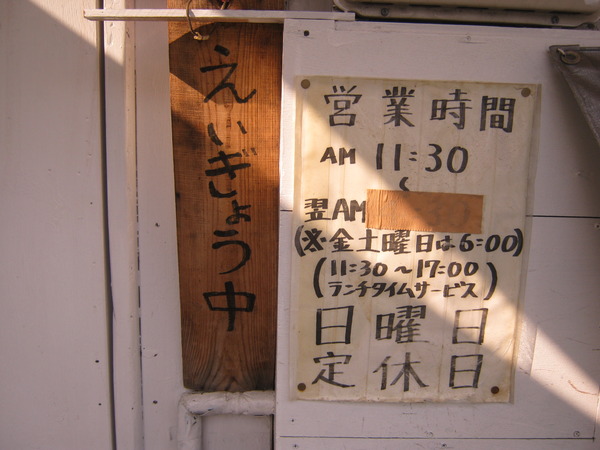 えいぎょう中
営業時間
AM 11:30
〜
翌AM
(※金土曜日は6:00)
(11:30～17:00
ランチタイムサービス)
日曜日
定休日